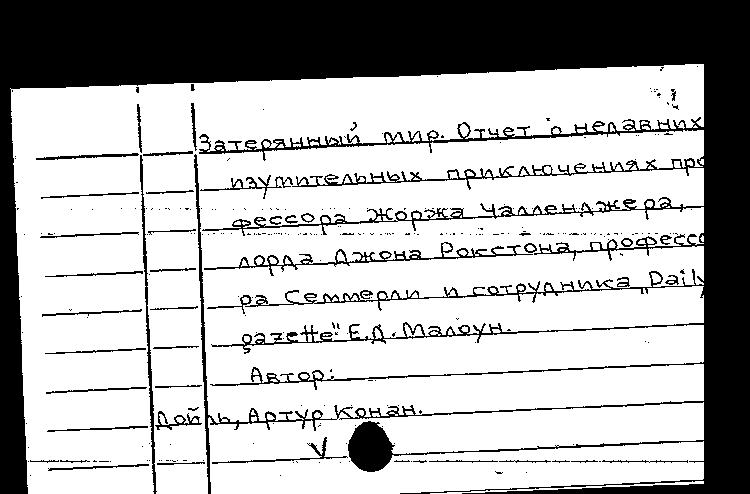 Затерянный мир. Отчет о недавних
изумительных приключениях про
фессора Жоржа Чалленджера,
лорда Джона Рокстона, профессо
ра Семмерли и сотрудника „Daily
gazette" Е.Д. Малоун.
Автор:
Дойль, Артур Конан.
V